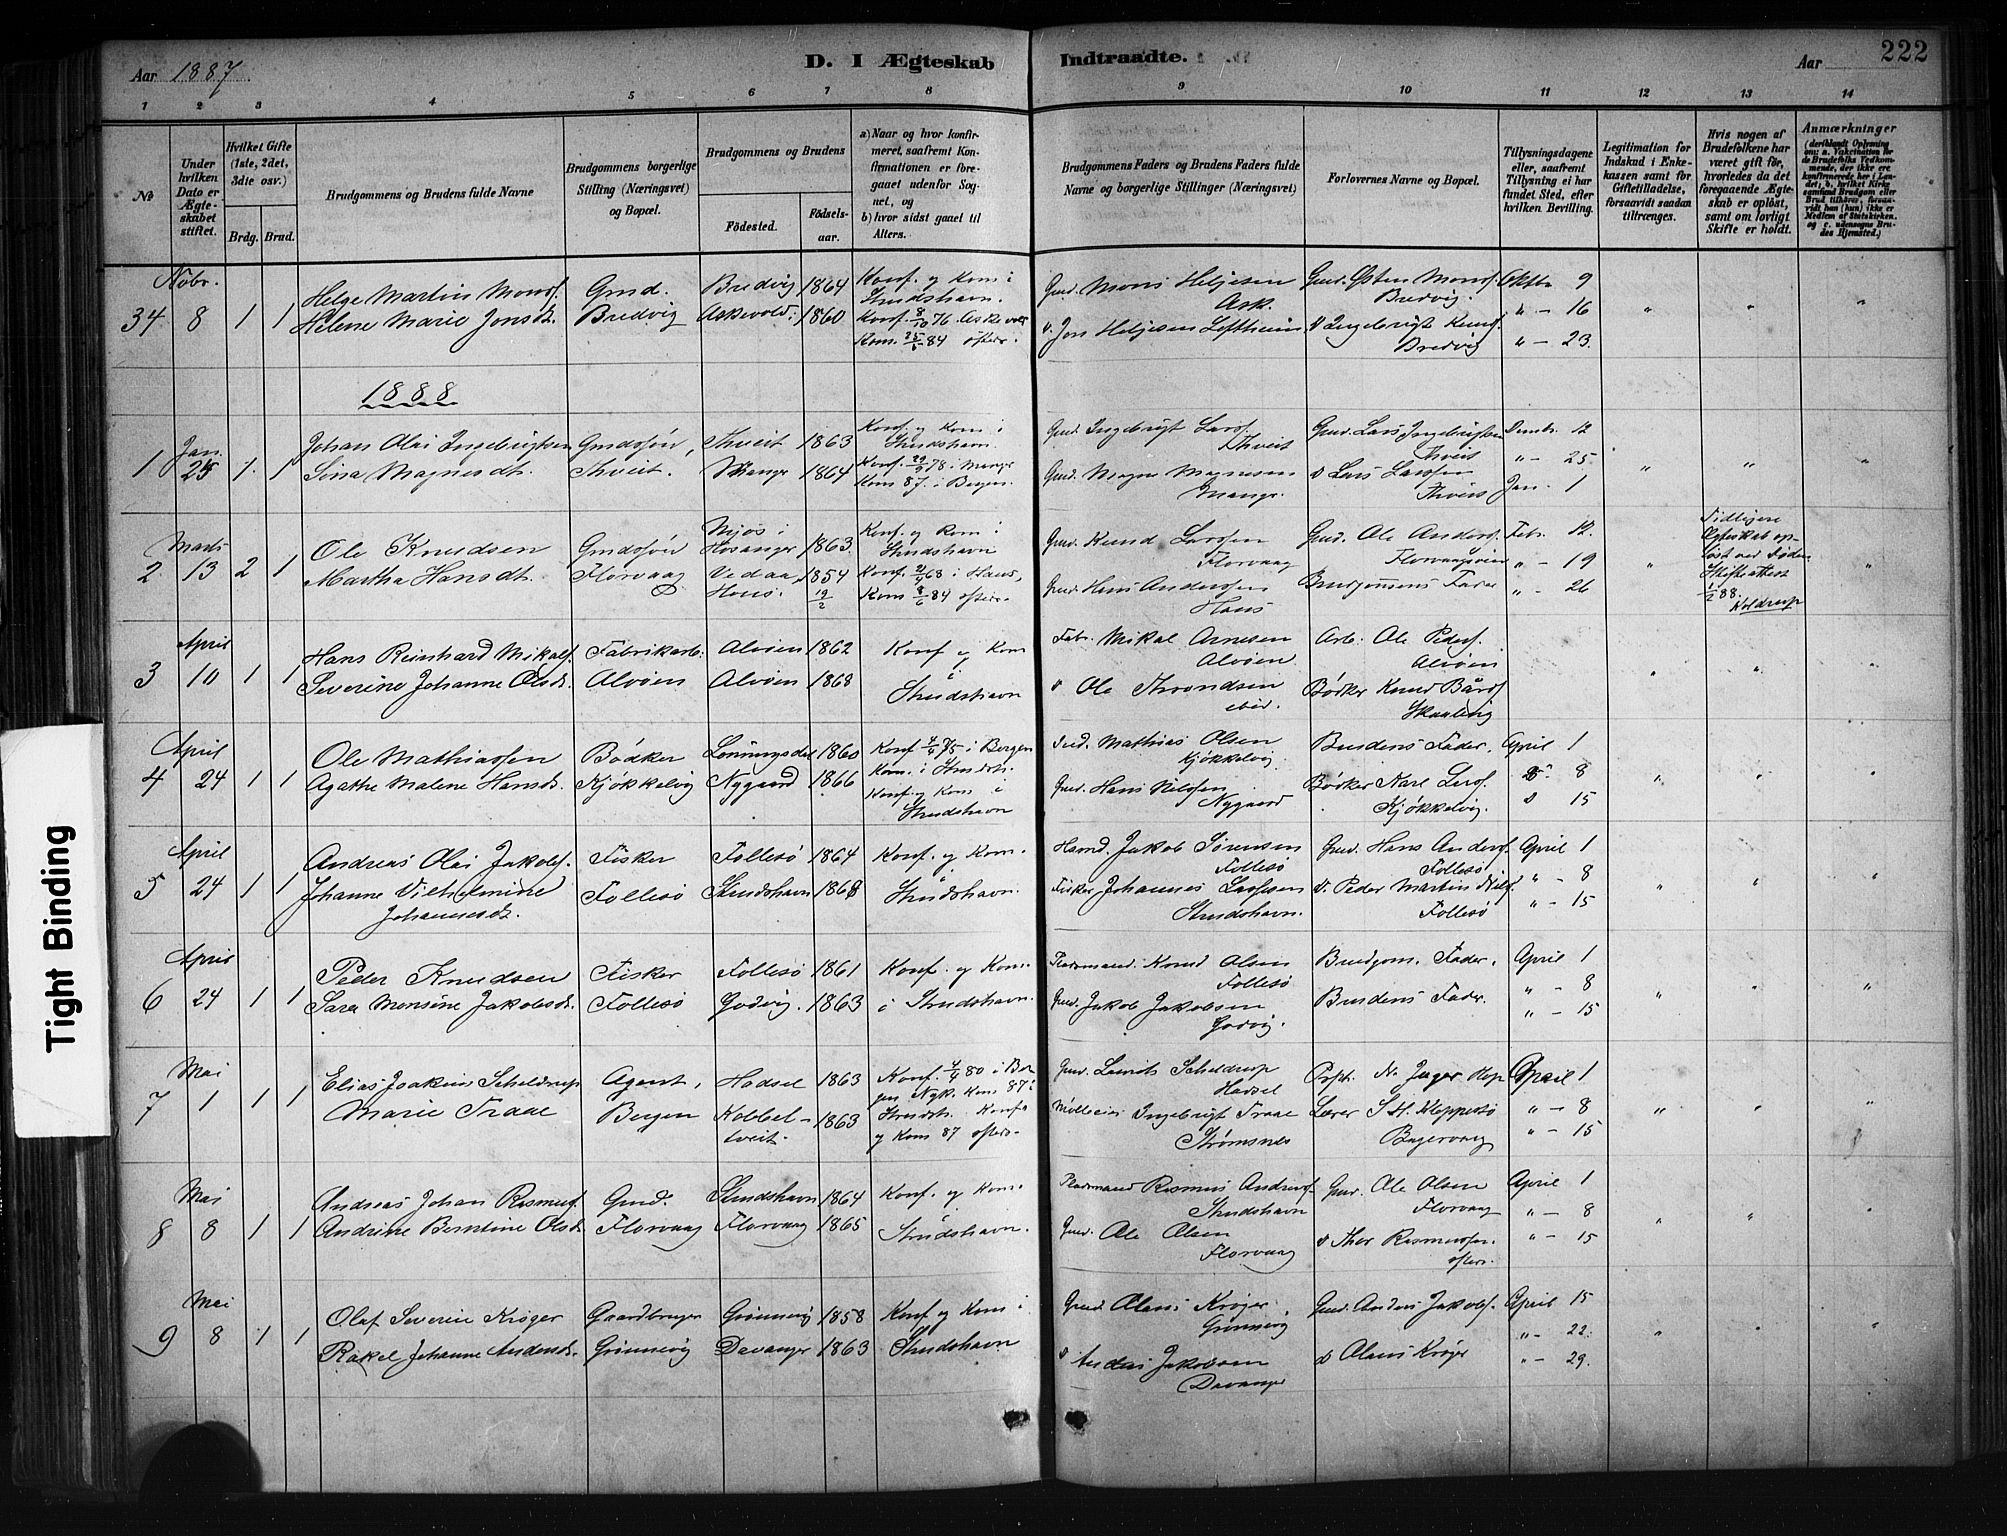 Aar 1887
D. I Ægteskab Indtraadte.
Aar 222
1 2 3 4 5 6 7 8 9 10 11 12 13 14
№
Under hvilken Dato er Ægteskabet stiftet.
Hvilket Gifte (1ste, 2det, 3dte osv.)
Brdg. Brud.
Brudgommens og Brudens fulde Navne
Brudgommens borgerlige Stilling (Næringsvei) og Bopæl.
Brudgommens og Brudens
Fødested.
Fødselsaar.
a) Naar og hvor konfirmeret, saafremt Konfirmationen er foregaaet udenfor Sognet, og
b) hvor sidst gaaet til Alters.
Brudgommens Faders og Brudens Faders fulde Navne og borgerlige Stillinger (Næringsvei)
Forlovernes Navne og Bopæl.
Tillysningsdagene eller, saafremt Tillysning ei har fundet Sted, efter hvilken Bevilling.
Legitimation for Indskud i Enkekassen samt for Giftetilladelse, forsaavidt saadan tiltrænges.
Hvis nogen af Brudefolkene har været gift før, hvorledes da det foregaaende Ægteskab er opløst, samt om lovligt Skifte er holdt.
Anmærkninger
Novbr.
34 8 1 1
Helge Martin Monsf.
Helene Marie Jonsdt.
Gmd.
Bredvig
Bredvig 1864
Askevold 1860
Konf. og Kom i
Strudshavn.
Konf. 8/10 76. Askevold
Kom. 25/6 84 ofters.
Gmd. Mons Heljesen
Ask.
" Jon Heljesen Loftheim.
Gmd. Østen Monsf.
Bredvig.
" Ingebrigt Knudf.
Bredvig
Oktbr 9
" - 16
" - 23.
1888
Jan.
1 25 1. 1
Johan Olai Ingebrigtsen
Sina Magnesdt.
Gmdssøn,
Thveit.
Thveit 1863
Mange 1864
Konf. og Kom i
Strudshavn.
Konf. 29/9 78 i Mange
Kom 87. i Bergen.
Gmd. Ingebrigt Larsf.
Thveit
Gmd. Magne Magnesen
Mange.
Gmd. Lars Ingebrigtsen
Thveit
" Lars Larssen
Thveit
Decbr. 12
" - 25
Jan. 1
Marts
2 13 2 1
Ole Knudsen
Martha Hansdt.
Gmdssøn
Florvaag
Mjøs i
Hosanger 1863.
Vedaa, 1854
Haus. 19/2
Konf. og Kom i
Strudshavn
Konf. 21/4 68 i Haus,
Kom 8/6 84 ofters.
Gmd. Knud Larssen
Florvaag
Gmd. Hans Anderssen
Haus
Gmd. Ole Andersf.
Florvaagøien
Brudgommens Fader
Febr. 12.
" - 19
" - 26
Tidligere
Ægteskab opløst ved Døden
Skifteattest
1/2 88.
Koldrup
April
3 10 1 1
Hans Reinhard Mikalf.
Severine Johanne Olsdt.
Fabrikarb.
Alvøen
Alvøen 1862
Alvøen 1868
Konf og Kom
i
Strudshavn
Fabr. Mikal Arnesen
Alvøen
" Ole Throndsen
ibid.
Arb. Ole Pedersf.
Alvøen
Bødker Knud Bårdf
Skaalevig
April
4 24 1 1
Ole Mathiassen
Agathe Malene Hansdt.
Bødker
Kjøkkelvig
Lonningsdal 1860
Nygaard 1866
Konf 4/4 75 i Bergen
Kom. i Strudsh.
Konf. og Kom i
Strudshavn
Mathias Olsen
Kjøkkelvig
Gmd. Hans Nilssen
Nygaard
Brudens Fader.
Bødker Karl Larsf.
Kjøkkelvig.
April 1
" 8
" 15
April
5 24 1 1
Andreas Olai Jakobsf.
Johanne Vilhelmine
Johannesdt.
Fisker
Follesø
Follesø 1864
Strudshavn 1868
Konf. og Kom.
i
Strudshavn.
Hamd. Jakob Sørensen
Follesø
Fisker Johannes Larssen
Strudshavn.
Gmd. Hans Andersf.
Follesø
" Peder Martin Nilsf
Follesø
April 1
" - 8
" - 15
April
6 24 1 1
Peder Knudsen
Sara Monsine Jakobsdt.
Fisker
Follesø
Follesø 1861
Godvig. 1863
Konf. og Kom.
i Strudshavn.
Pladsmand Knud Olsen
Follesø
Gmd. Jakob Jakobsen
Godvig.
Brudgom. Fader.
Brudens Fader.
April 1
" - 8
" - 15
Mai
7 1 1 1
Elias Joakim Scheldrup
Marie Traae
Agent,
Bergen
Hadsel 1863
Kobbeltveit. 1863
Konf. 4/4 80 i Bergen Nyk. Kom 87 i
Strudsh. Konf.
og Kom 87 ofters.
Gmd. Laurits Scheldrup
Hadsel
Mølleeier Ingebrigt Traae
Strømsnes
N. Jæger Hop
Lærer S. H. Kleppestø
April 1
" - 8
" - 15
Mai
8 8 1 1
Andreas Johan Rasmusf.
Andrine Berntine Olsdt.
Gmd.
Florvaag
Strudshavn 1864
Florvaag 1865
Konf. og Kom.
i
Strudshavn.
Pladsmand Rasmus Andersf.
Strudshavn
Gmd. Ole Olsen
Florvaag
Gmd. Ole Olsen
Florvaag
" Thor Rasmussen.
ofters.
April 1
" - 8
" - 15
Mai
9 8 1 1
Olaf Severin Krøger
Rakel Johanne Andersdt.
Gaardbruger
Grønnevig
Grønnevig 1858
Davanger 1863
Konf og Kom i
Strudshavn
Gmd. Olaus Krøger
Grønnevig
" Anders Jakobsen
Davanger
Gmd. Anders Jakobsf.
" Olaus Krøger
April 15
" - 22.
" - 29.
Tight Binding